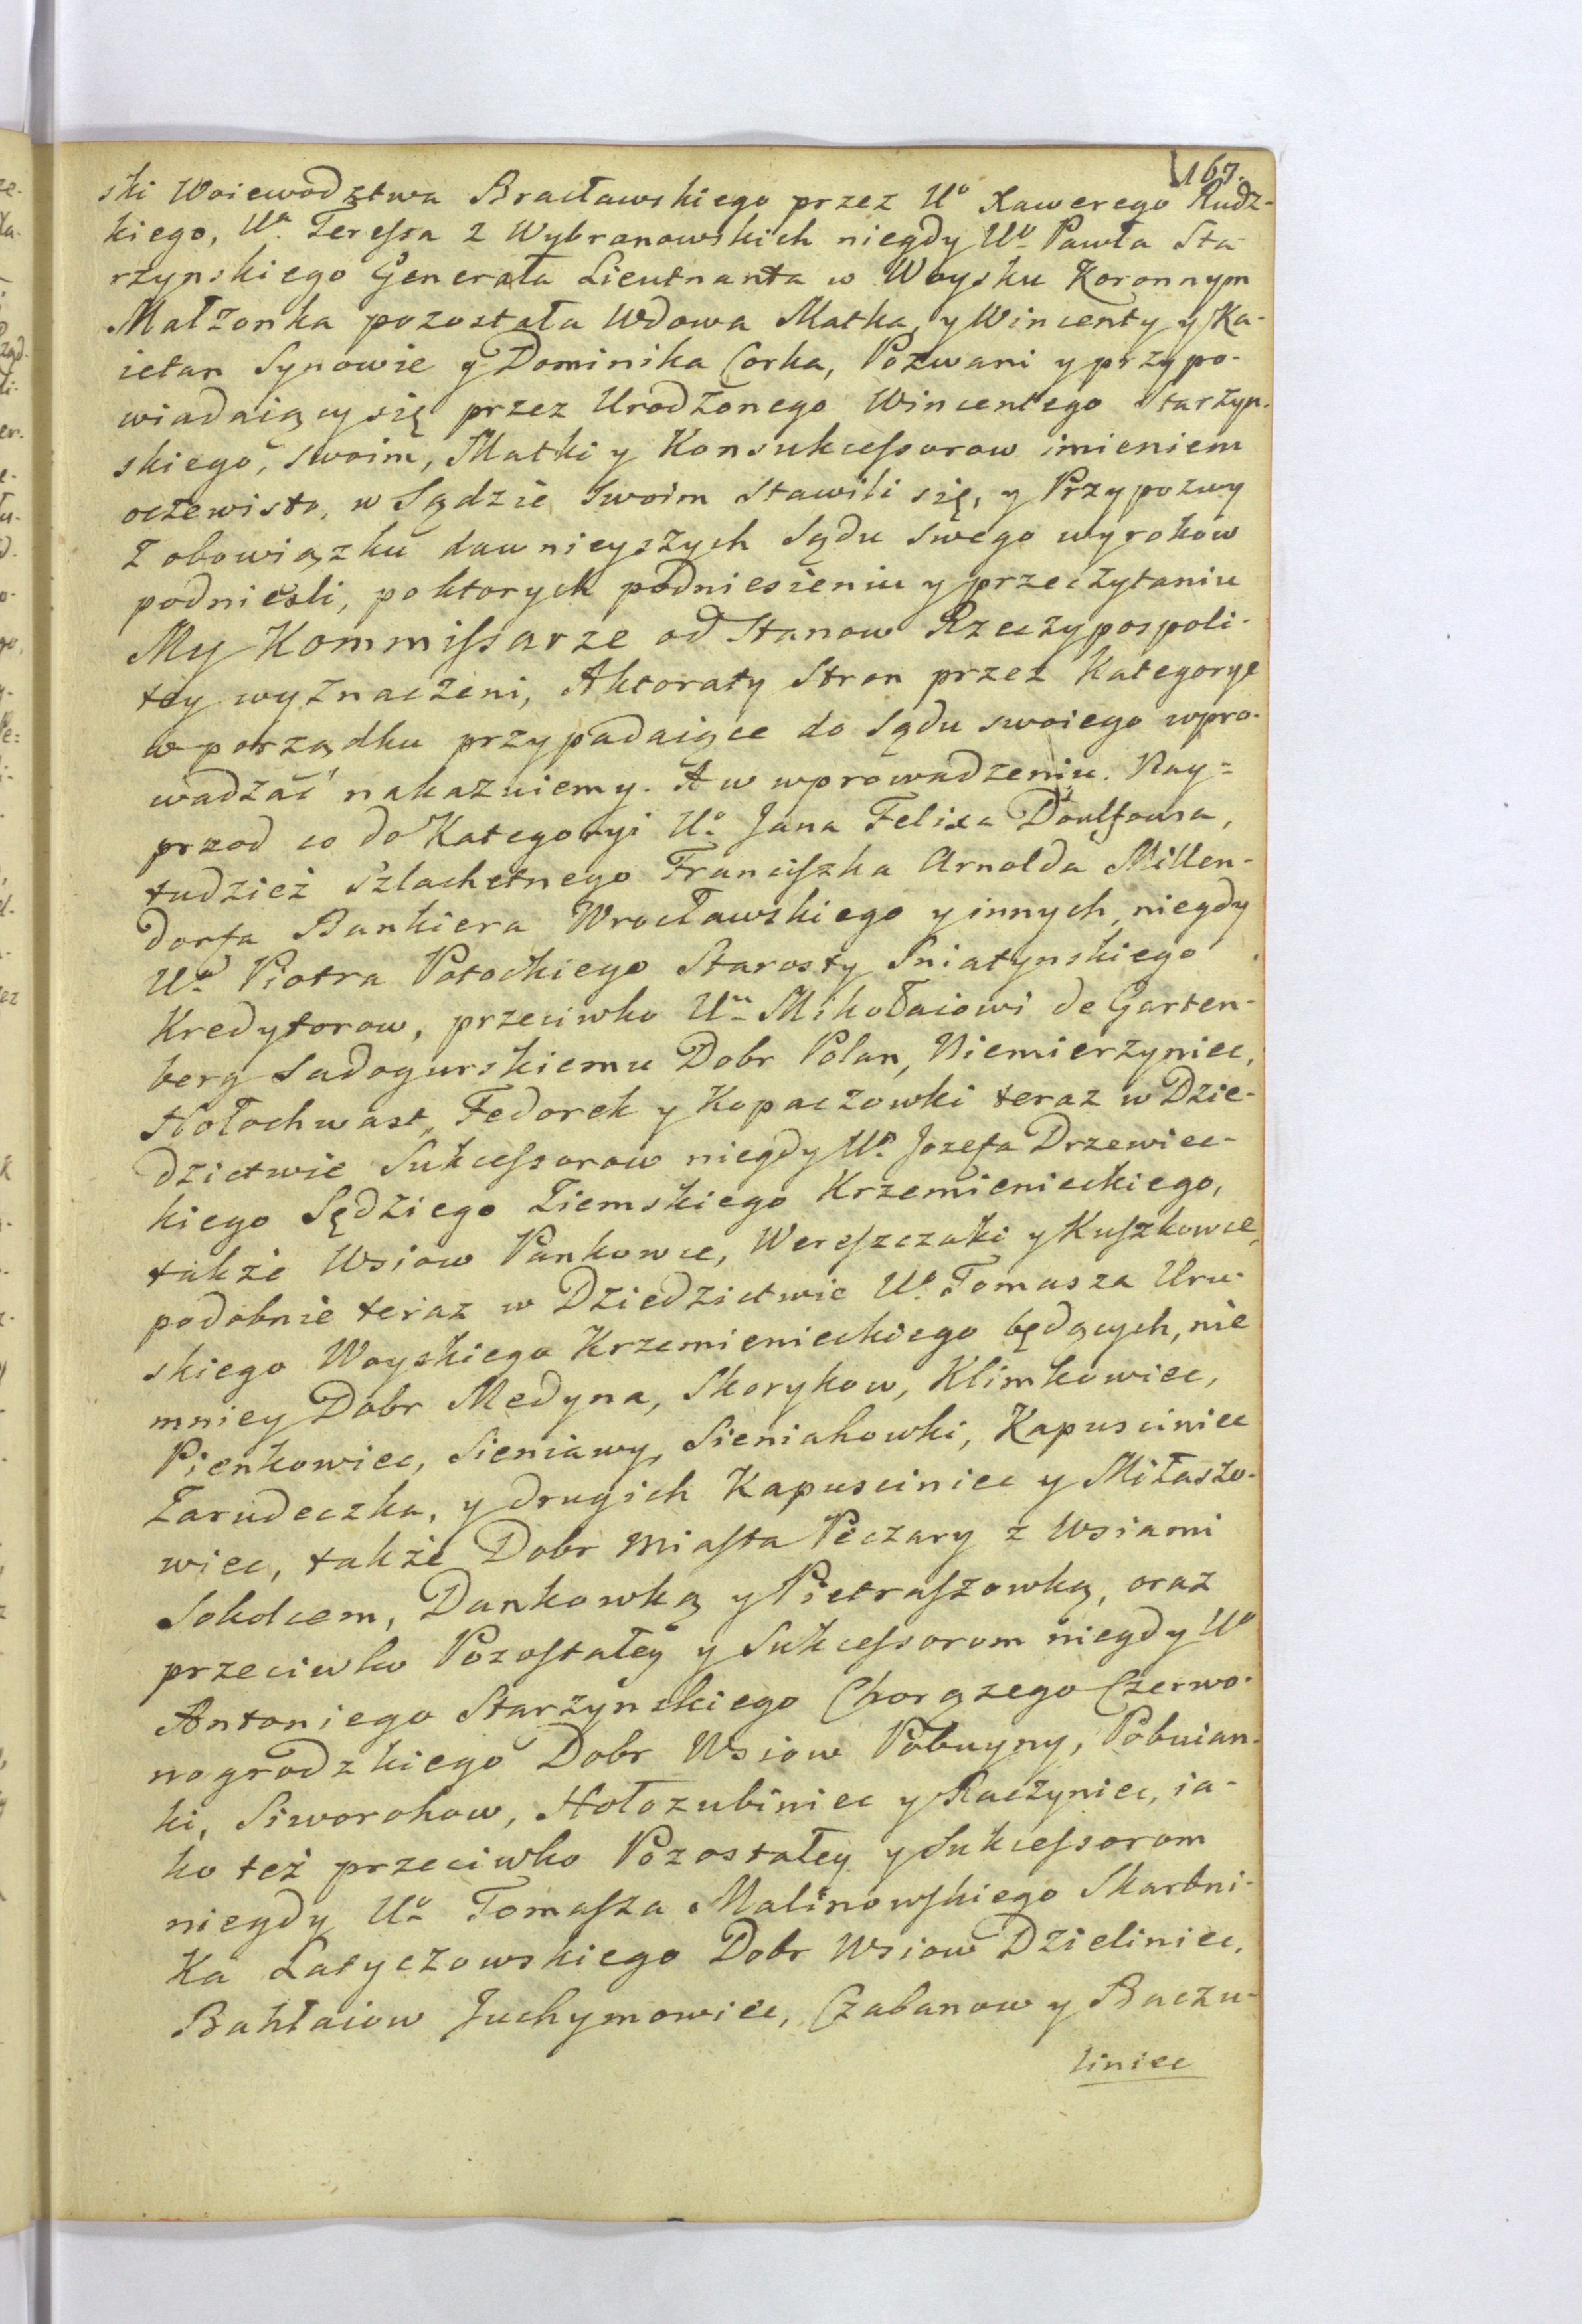 167.
ski Woiewodztwa Bracławskiego przez Uo Xawerego Rudz-
kiego, Ua Teressa z Wybranowskich niegdy Uo Pawła Sta
rzynskiego Generała Lieutnanta w Woysku Koronnym
Małzonka pozostała Wdowa Matka, y Wincenty y Ka-
ietan Synowie y Dominika Corka, Pozwani y przypo-
wiadaiący się przez Urodzonego Wincentego Starzyn-
skiego, swoim, Matki y Konsukcessorow imieniem
oczewisto, w Sądzie Swoim Stawili się, y Przypozwy
z obowiązku dawnieyszych Sądu Swego wyrokow
podniesli, po ktorych podniesieniu y przeczytaniu
My Kommissarze od Stanow Rzeczypospoli-
tey wyznaczeni, Aktoraty Stron przez Kategorye
w porządku przypadaiące do Sądu swoiego wpro-
wadzać nakazuiemy. A w wprowadzeniu. Nay=
przod co do Kategoryi Uo Jana Felixa
tudzież Szlachetnego Franciszka Arnolda Millen-
dorfa Bankiera Wrocławskiego y innych, niegdy
Uo Piotra Potockiego Starosty Sniatynskiego
Kredytorow, przeciwko Um Mikołaiowi de Garten-
berg Sadogurskiemu Dobr Polan, Niemierzyniec,
Hołochwast, Fedorek y Kopaczowki teraz w Dzie-
dzictwie Sukcessorow niegdy Uo Jozefa Drzewiec-
kiego Sędziego Ziemskiego Krzemienieckiego,
także Wsiow Pankowce, Wereszczaki y Kuszkowce,
podobnie teraz w Dziedzictwie Uo Tomasza Uru-
skiego Woyskiego Krzemienieckiego będących, nie
mniey Dobr Medyna, Skorykow, Klimkowiec,
Pienkowiec, Sieniawy, Sieniahowki, Kapusciniec
Zarudeczka, y drugich Kapusciniec y Miłaszo-
wiec, także Dobr Miasta Peczary z Wsiami
Sokolcem, Dankowką y Pietraszowką, oraz
przeciwko Pozostałey y Sukcessorom niegdy Uo
Antoniego Starzynskiego Chorązego Czerwo-
nogrodzkiego Dobr Wsiow Pobuyny, Pobuian-
ki, Siworohow, Hołozubiniec y Raczyniec, ia-
ko też przeciwko Pozostałey y Sukcessorom
niegdy Uo Tomasza Malinowskiego Skarbni-
Ka Latyczowskiego Dobr Wsiow Dzieliniec,
Bahłaiow Juchymowiec, Czabanow y Baczu-
liniec